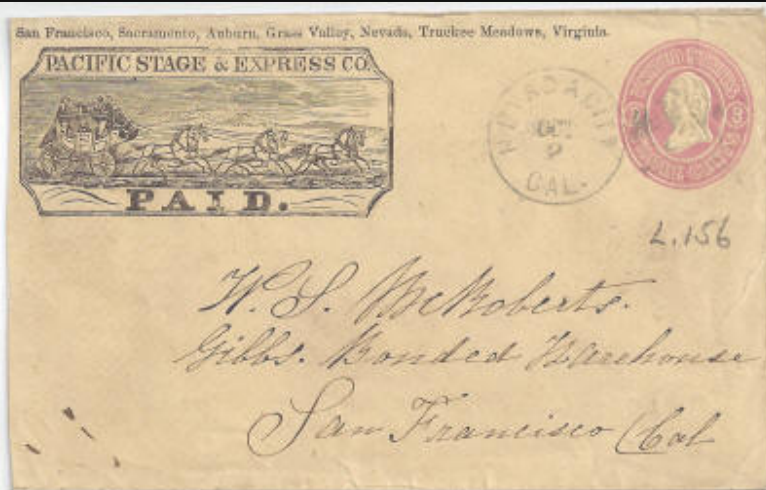 San Francisco, Sacramento, Auburn, Grass Valley, Nevada, Truckee Meadows, Virginia.
PACIFIC STAGE & EXPRESS CO.
PAID.
NEVADA CITY
OCT
2
CAL.
3
L.156
W. S. McRoberts.
Gibbs. Bonded Warehouse
San Francisco Cal